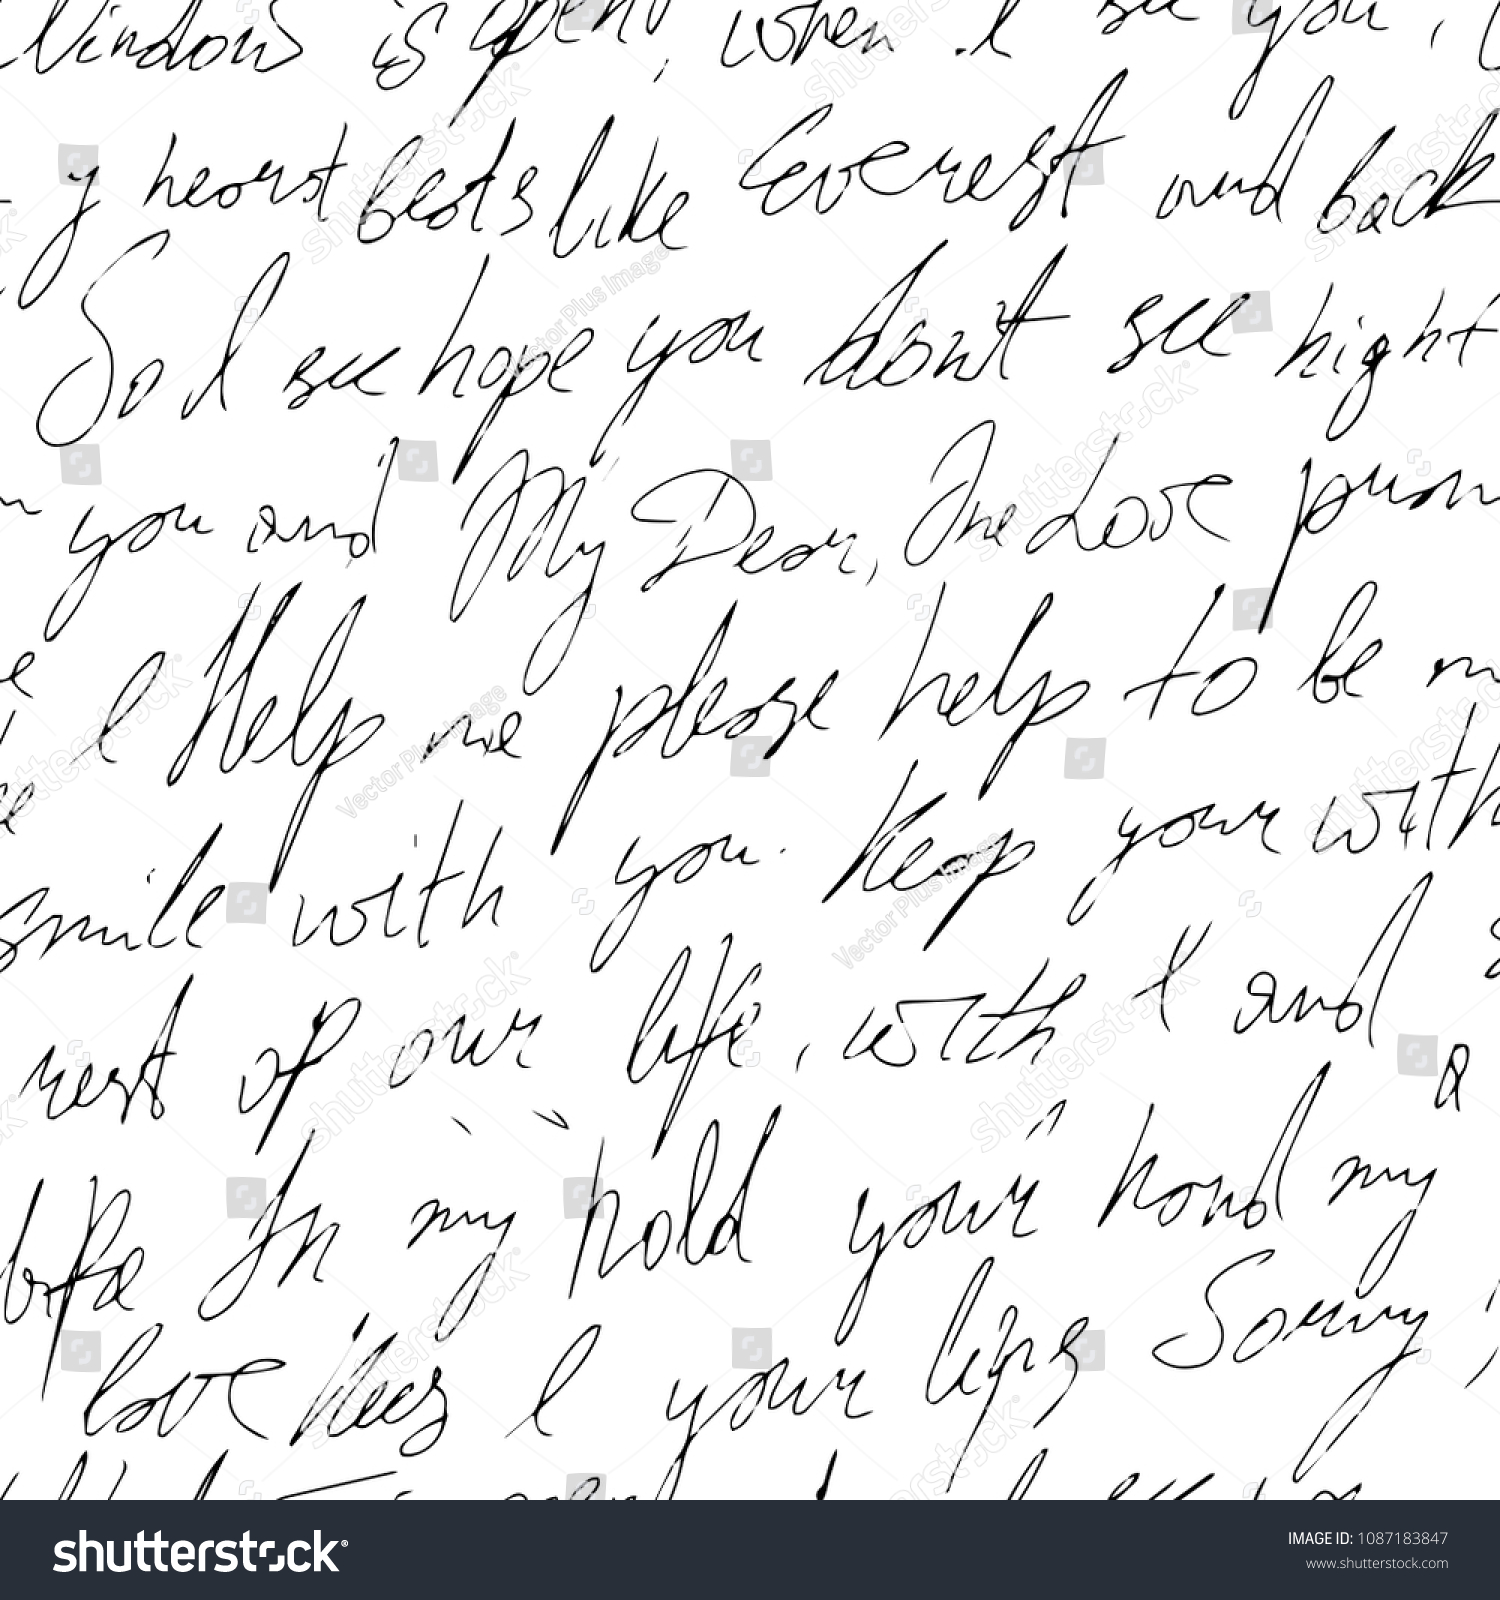 Window is open, when I see you,
y heart beats like Everest and back
So I see hope you don't see night
you and My Dear, The Love
I Help me please help to be
smile with you. Keep your with
rest of our life, with I and
life In my hold your hand my a
love kees I your lips Sorry,
shutterstock
IMAGE ID: 1087183847
www.shutterstock.com